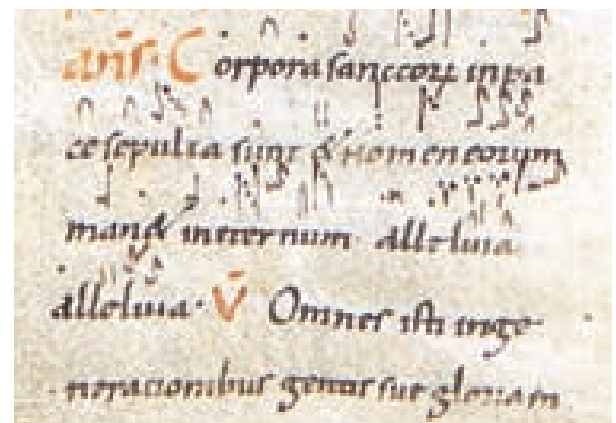 añs. Corpora sanctorꝝ in pa
ce sepulta sunt & nomen eorum
man& in eternum alleluia
alleluia. V̄ Omnes isti in ge
nerationibus gentis sue gloriam